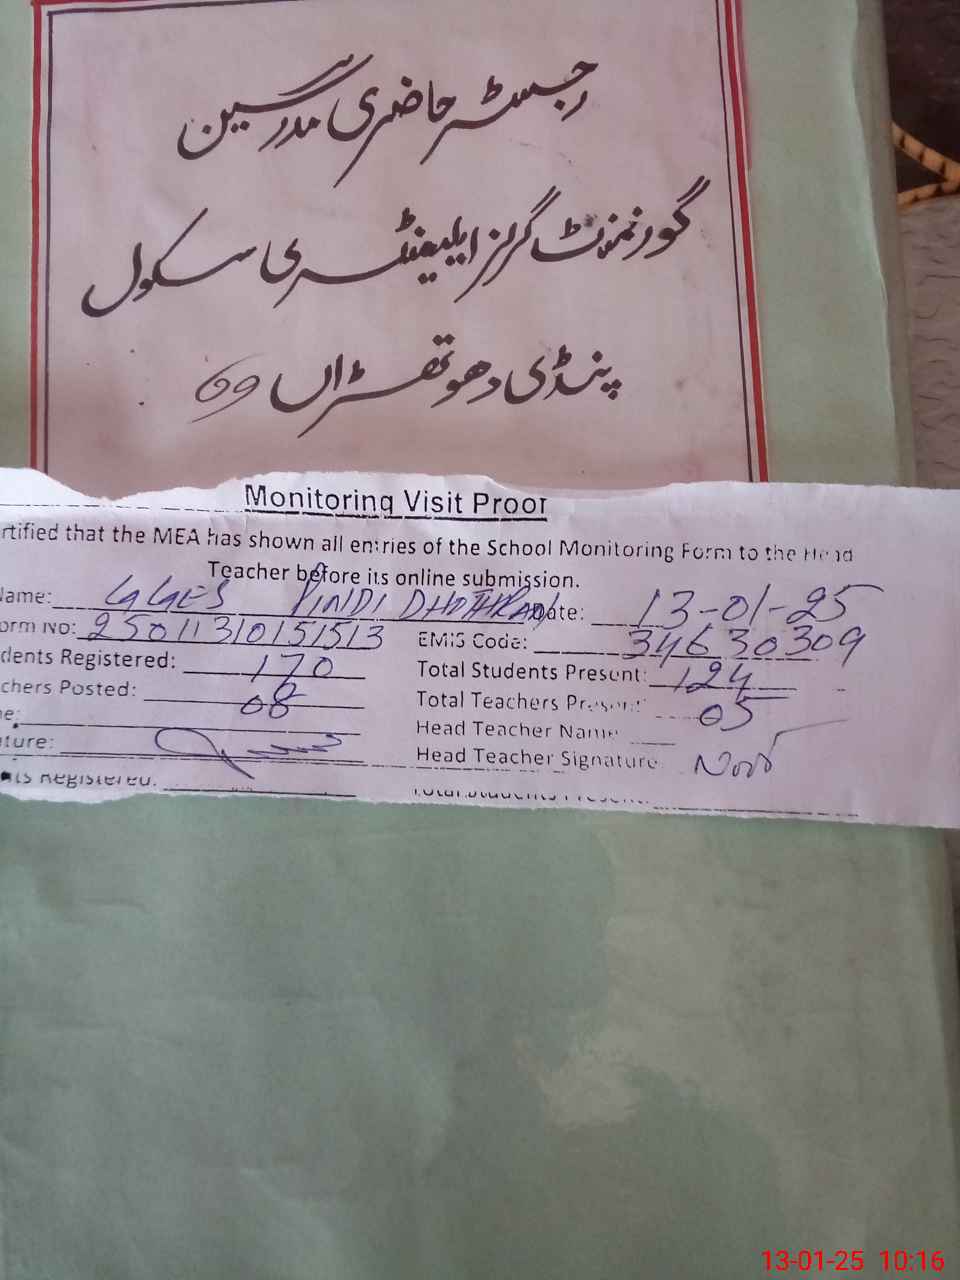 رجسٹر حاضری مدرسین
گورنمنٹ گرلز ایلیمنٹری سکول
پنڈی دھوتھڑاں
Monitoring Visit Proof
rtified that the MEA has shown all entries of the School Monitoring Form to the Head
Teacher before its online submission.
Name: GGES PINDI DHOTHRAN Date: 13-01-25
orm No: 25011310151513 EMIS Code: 34630309
dents Registered: 170 Total Students Present: 124
chers Posted: 08 Total Teachers Present: 05
e: Head Teacher Name
ature: Head Teacher Signature
ts Registered: Total Students Present:
13-01-25 10:16